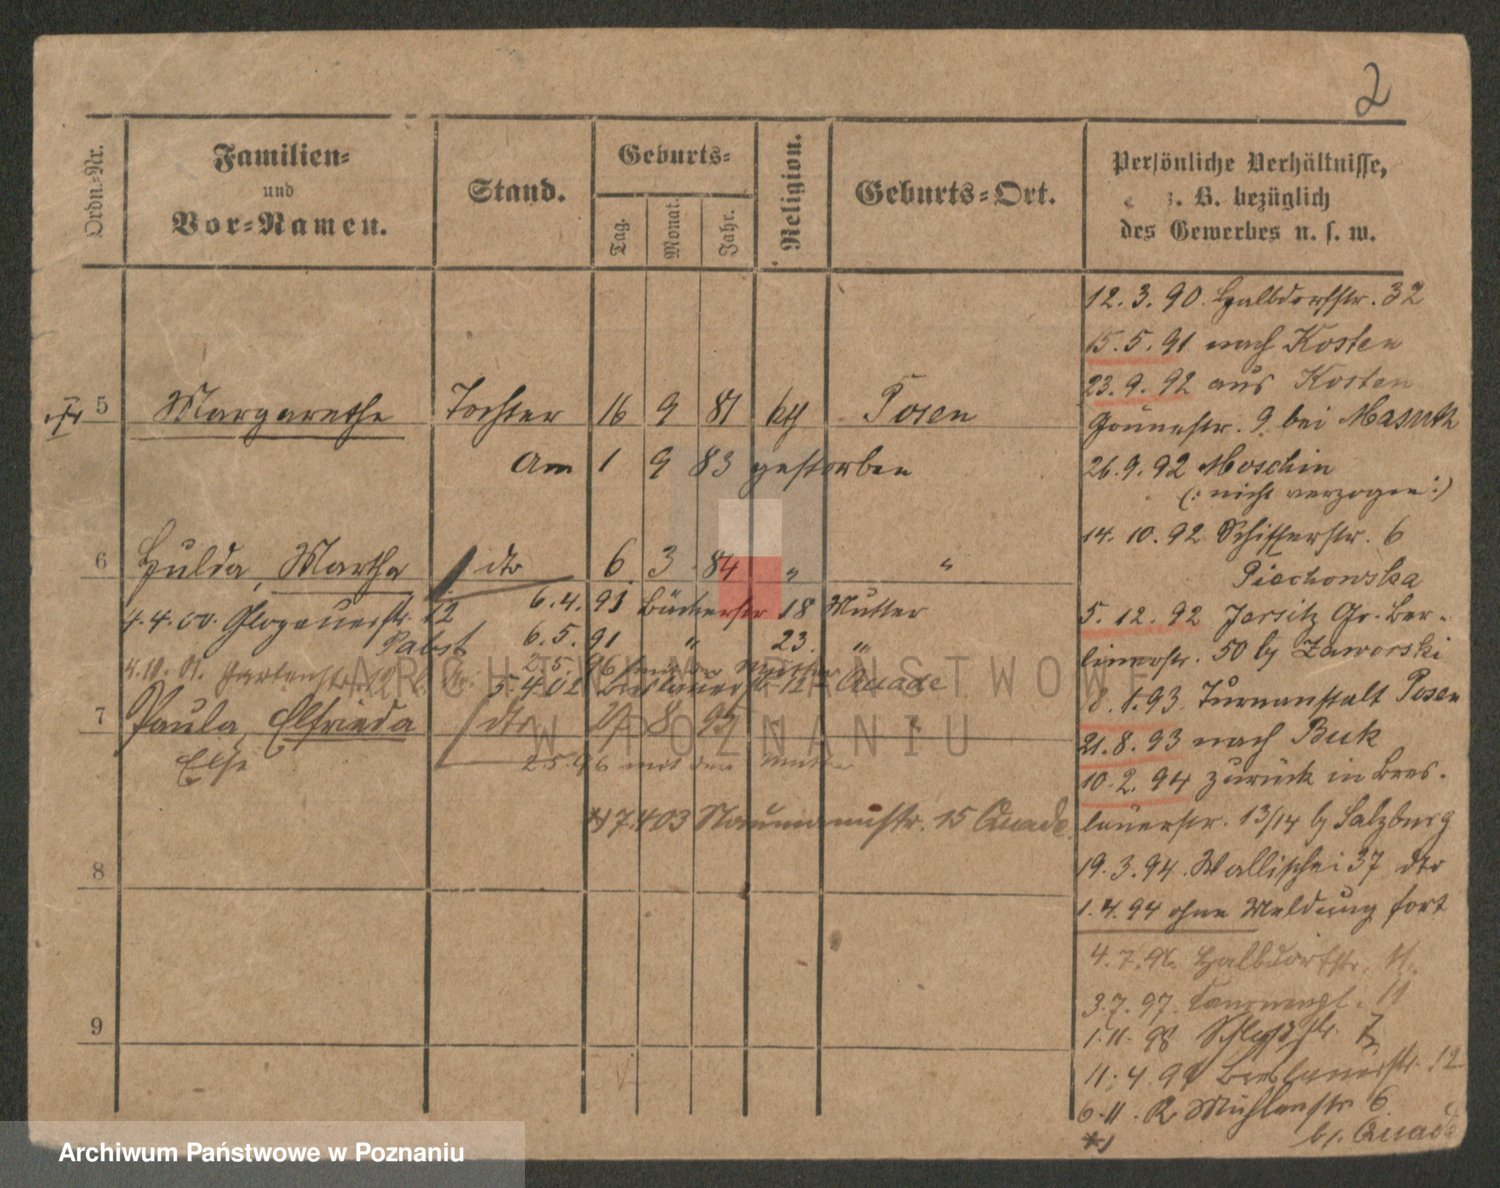 2
Ordn.-Nr.
Familien-
und
Vor-Namen.
Stand.
Geburts-
Tag.
Monat.
Jahr.
Religion.
Geburts-Ort.
Persönliche Verhältnisse,
z. B. bezüglich
des Gewerbes u. s. w.
12. 3. 90. Halbdorfstr. 32
15. 5. 91 nach Kosten
23. 9. 92 aus Kosten
5 Margarethe Tochter 16 9 81 Posen
bei
Am 1 9 83 gestorben
26. 9. 92 Moschin
(: nicht verzogen :)
14. 10. 92 Schifferstr. 6
Piechowska
6 Hulda, Martha dto 6 3 84 " "
4. 4. 00. Glogauerstr. 12
6. 4. 91 Bäckerstr 18 Mutter
Pabst
6. 5. 91 " 23. "
5. 12. 92 Jersitz Gr. Ber-
linerstr. 50 by Zaworski
5. 4 02 Breslauerstr. 12 Quade
8. 1. 93. Turnanstalt Posen
7 Paula, Elfriede dto 8 95 " "
Else
25. 96 mit der Mutter
21. 8. 93 nach Buk
10. 2. 94 zurück in Bres-
lauerstr. 13/14 by Salzburg
17. 4 03 Naumannstr. 15 Quade.
8
19. 3. 94. Wallischei 37 dto
1. 4. 94 ohne Meldung fort
4. 7. 96. Halbdorfstr.
3. 7. 97.
9
1. 11. 98 Schloßstr. 7
11. 4. 99 Breslauerstr. 12
6. 11. Mühlenstr 6.
by. Quade
ARCHIWUM PAŃSTWOWE
W POZNANIU
Archiwum Państwowe w Poznaniu